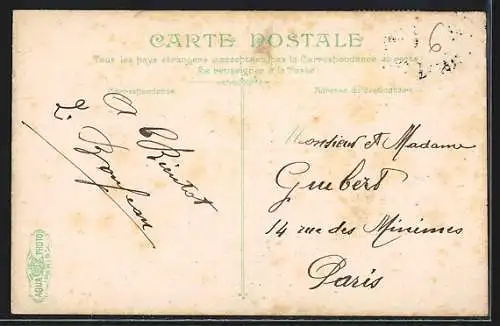 CARTE POSTALE
Tous les pays étrangers n'acceptent pas la Correspondance au recto
Se renseigner à la Poste
Correspondance
Adresse du Destinataire
6
A Bientot
Monsieur et Madame
Guibert
14 rue des Minimes
Paris
AQUA PHOTO